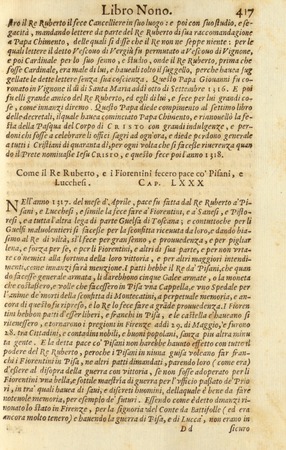 Libro Nono. 417
ſtro il Re Ruberto ſi fece Cancelliere in ſuo luogo: e poi con ſuo ſtudio, e ſe-
gacità, mandando lettere da parte del Re Ruberto di ſua raccomandagione
a Papa Chimento, delle quali ſi diſſe che il Re non ne ſeppe niente: per le
quali lettere il detto Veſcouo di Vergiù fu permutato a Veſcouo di Vignone,
e poi Cardinale per lo ſuo ſenno, e ſtudio, onde il Re Ruberto, prima che
foſſe Cardinale, era male di lui, e haueali tolto il ſuggello, perche hauea ſug-
gellate le dette lettere ſenza ſua coſcienza. Queſto Papa Giouanni fu co-
ronato in Vignone il dì di Santa Maria addì otto di Settembre 1316. E poi
fu egli grande amico del Re Ruberto, ed egli di lui, e fece per lui grandi co-
ſe, come innanzi diremo. Queſto Papa diede compimento al ſettimo libro
delle decretali, il quale hauea cominciato Papa Chimento, e riannouellò la fe-
ſta della Paſqua del Corpo di CRISTO con grandi indulgenze, e per-
doni chi foſſe a celebrare li offici ſagri ad ogn'ora, e diede perdono generale
a tutti i Criſtiani di quaranta dì, per ogni volta che ſi faceſſe riuerenza quan-
do il Prete nominaſſe Ieſu CRISTO, e queſto fece poi anno 1318.
Come il Re Ruberto, e i Fiorentini fecero pace co' Piſani, e
Luccheſi. CAP. LXXX
NEll'anno 1317. del meſe d'Aprile, pace fu fatta dal Re Ruberto a' Pi-
ſani, e Luccheſi, e ſimile la fece fare a' Fiorentini, e a' Saneſi, e Piſto-
reſi, e a tutta l'altra lega di parte Guelfa di Toſcana; e contuttoche per li
Guelfi maluolentieri ſi faceſſe per la ſconfitta riceuuta da loro, e dando all'a-
nimo alla vendetta, sì l'fece per gran ſenno, e prouuedenza, e per pigliar
lena, e forza per ſe, e per li Fiorentini, e altri di ſua parte, e per non vrta-
re co' nemici alla fortuna della loro vittoria, e per altri maggiori intendi-
menti, come innanzi farà menzione. I patti hebbe il Re da' Piſani, che quan-
do faceſſe generale armata, li darebbono cinque Galee armate, o la moneta
che coſtaſſero, e volle che faceſſero in Piſa vna Cappella, e vno Spedale per
l'anime de' morti della ſconfitta di Montecatini, a perpetuale memoria, e an-
cora di queſto fu ripreſo, e lo Re lo fece fare a grande prouuedenza. I Fioren-
tini hebbon patti d'eſſer liberi, e franchi in Piſa, e le caſtella e haueano ſi
ritenneſſero, e tornarono i pregioni in Firenze addì 10. di Maggio, e furono
28. tra Cittadini, e contadini nobili, e buoni popolani, ſanza più altra minu
ta gente. E la detta pace co' Piſani non harebbe hauuto effetto con tutto il
podere del Re Ruberto, peroche i Piſani in niuna guiſa voleano far fran-
chi i Fiorentini in Piſa, ne altri patti dimandati, parendo loro (come era)
d'eſſere al diſopra della guerra con vittoria, ſe non foſſe adoperato per li
Fiorentini vna bella, e ſottile maeſtria di guerra per l'officio paſſato de' Prio-
ri, in tra' quali hauea di ſani, e diſcreti huomini, della quale è bene da fare
noteuole memoria, per eſempio de' futuri. Eſſendo come è detto dinanzi ri-
nonato lo ſtato in Firenze, per la ſignoria del Conte da Battifolle (ed era
ancora molto tenero) e hauendo la guerra di Piſa, e di Lucca, non erano in
Dd ſicuro